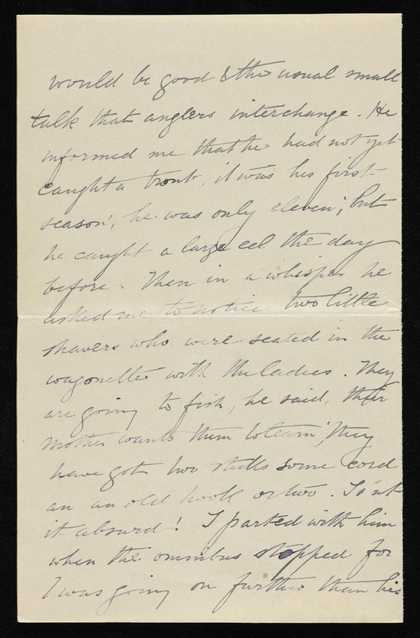 would be good & the usual small
talk that anglers interchange. He
informed me that he had not yet
caught a trout, it was his first
season, he was only eleven; but
he caught a large eel the day
before. Then in a whisper he
asked me to notice two little
shavers who were seated in the
wagonette with the ladies. They
are going to fish, he said, their
mother wants them to learn; they
have got two sticks some cord
an an old hook or two. Is'nt
it absurd! I parted with him
when the omnibus stopped for
I was going on further than his